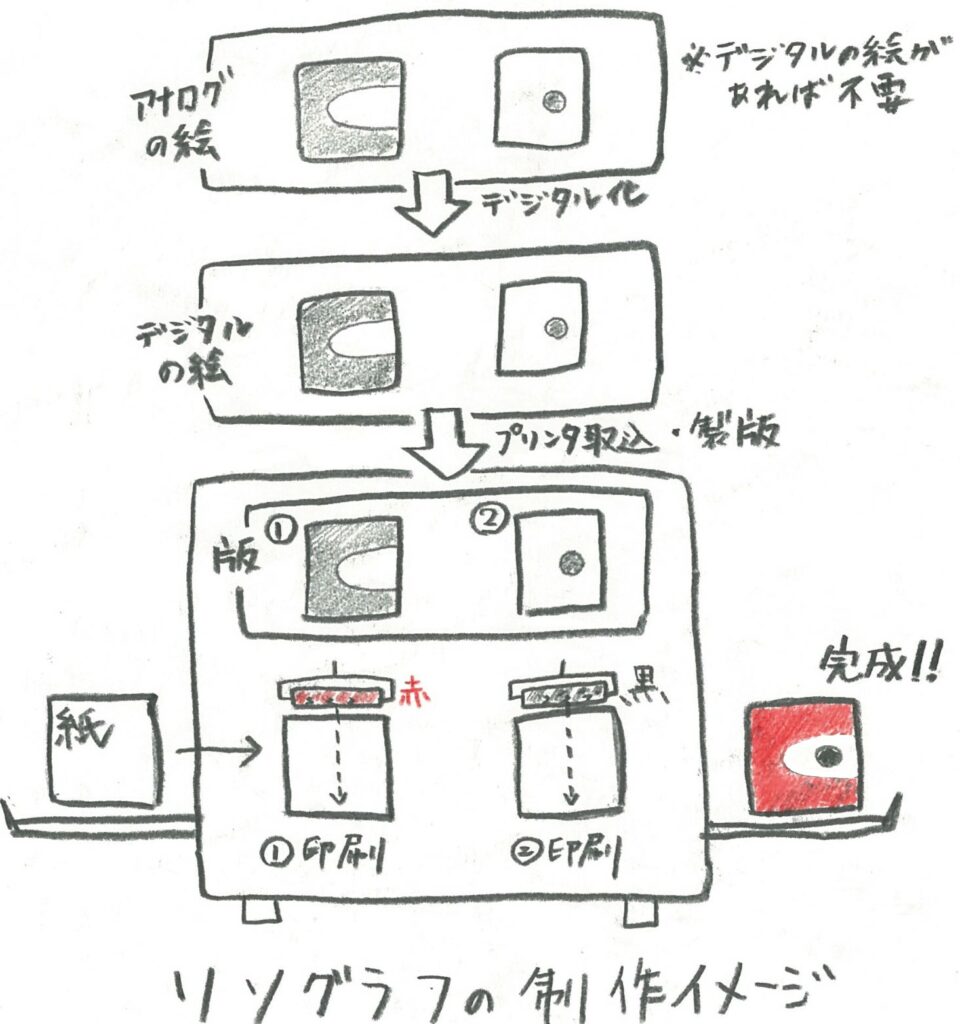 ※デジタルの絵が
あれば不要
アナログ
の絵
デジタル化
デジタル
の絵
プリンタ取込・製版
①
②
版
赤
黒
完成!!
紙
①印刷
②印刷
リソグラフの制作イメージ